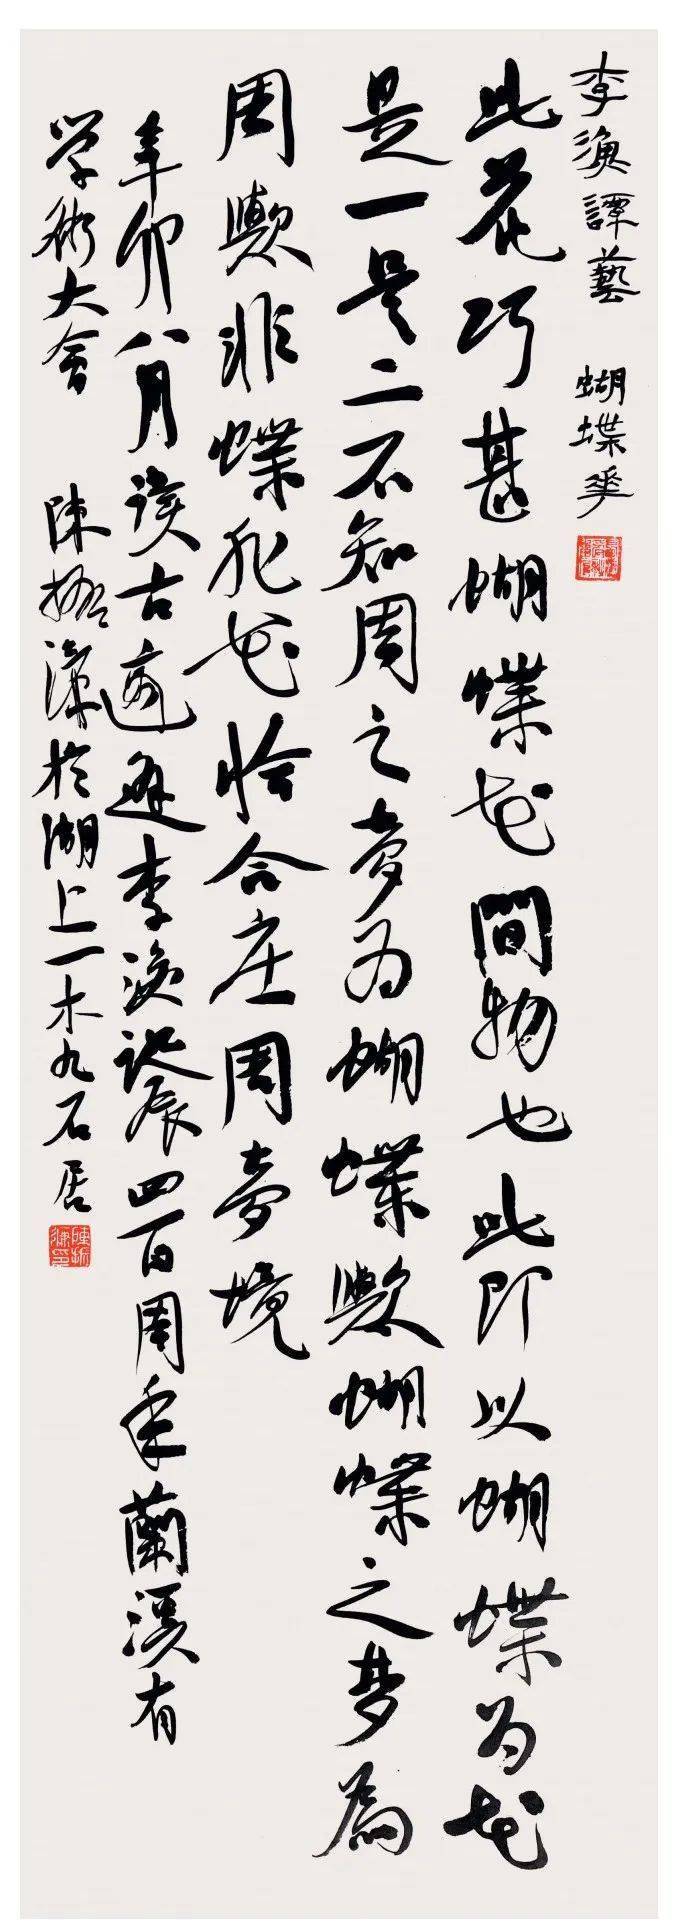 李漁譚藝 蝴蝶華
此花巧甚蝴蝶花間物也此即以蝴蝶为花
是一是二不知周之夢为蝴蝶歟蝴蝶之梦為
周歟非蝶非花恰合庄周夢境
辛卯八月读古適逢李漁誕辰四百周年蘭溪有
学術大會 陳振濂於湖上一木九石居